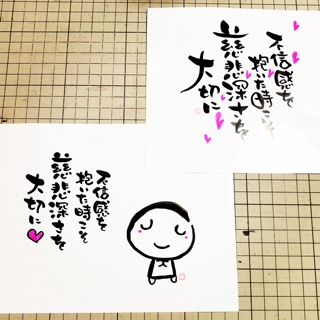 不信感を
抱いた時こそ
慈悲深さを
大切に
不信感を
抱いた時こそ
慈悲深さを
大切に